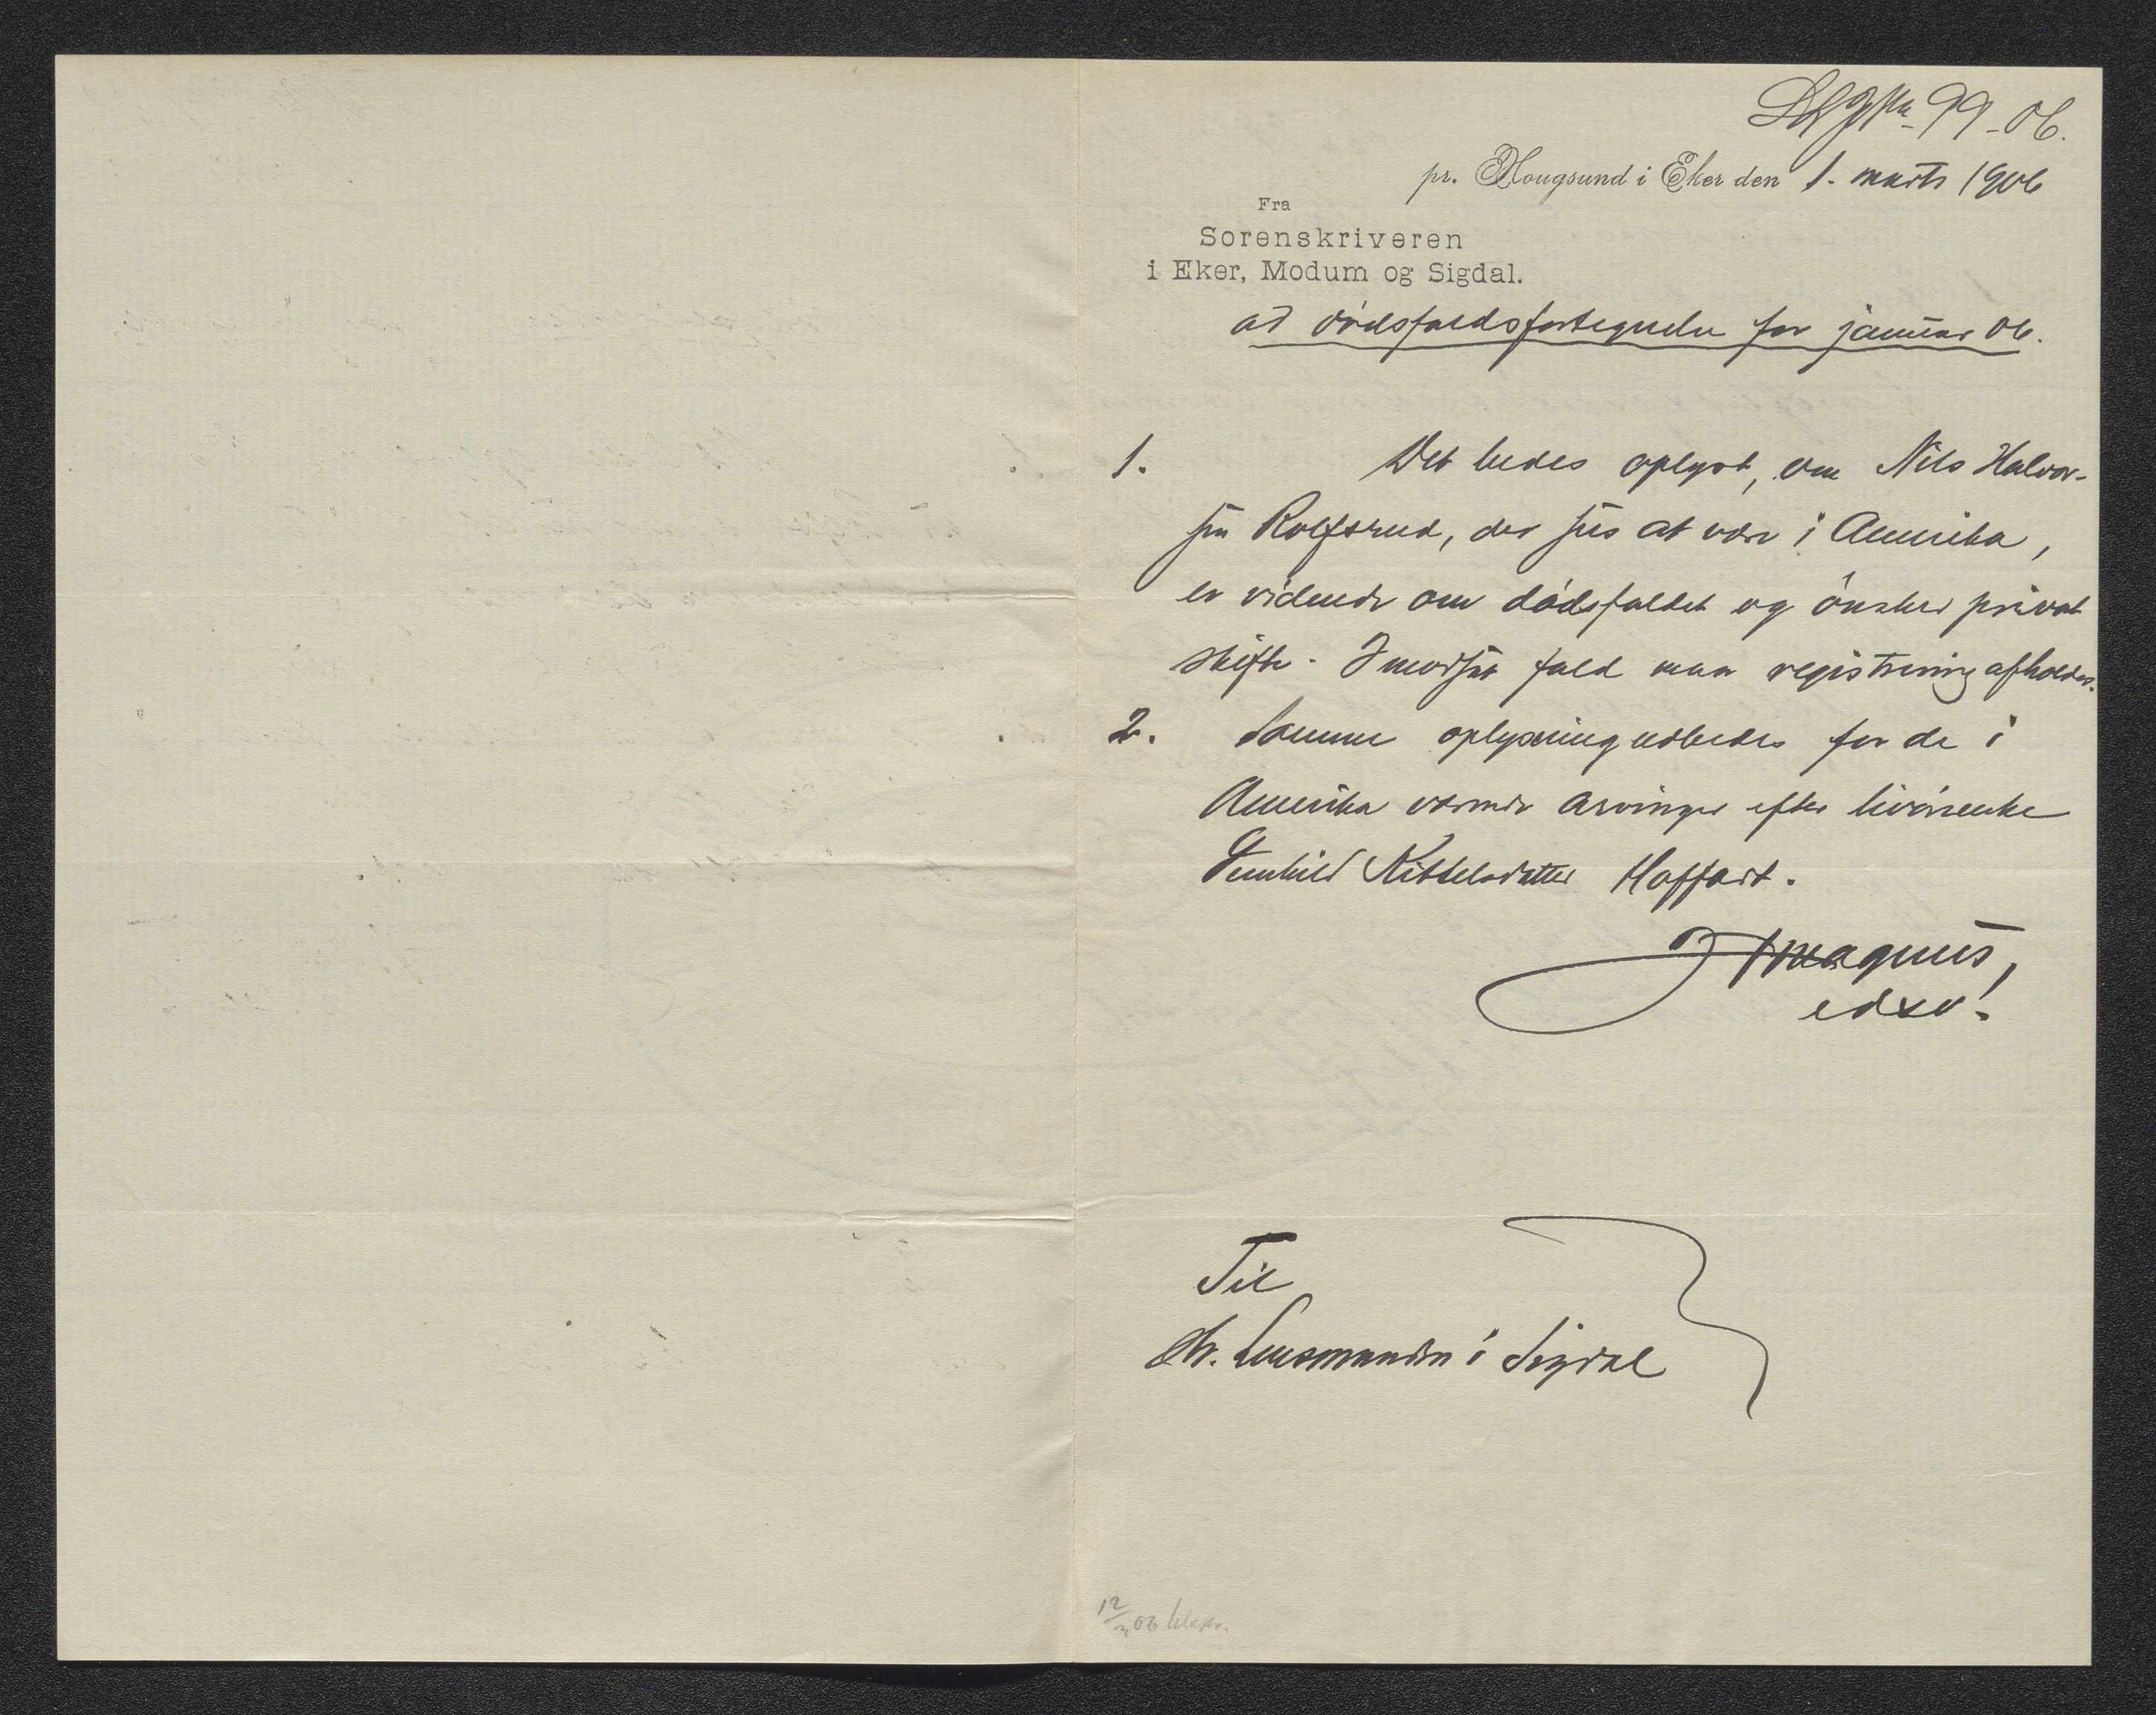 99-06.
pr. Hougsund i Eker den 1. marts 1906
Fra
Sorenskriveren
i Eker, Modum og Sigdal.
ad dødsfaldsfortegnelse for januar 06.
1. Det bedes oplyst, om Nils Halvor-
sen Rolfsrud, der sees at være i Amerika,
er vidende om dødsfaldet og ønsker privat
skifte. I modsat fald maa registrering afholdes.
2. Samme oplysning udbedes for de i
Amerika værende arvinger efter livørenke
Gunhild Kittelsdatter Hoffart.
Magnus,
edsv.
Til
Hr. Lensmanden i Sigdal
12/3 06